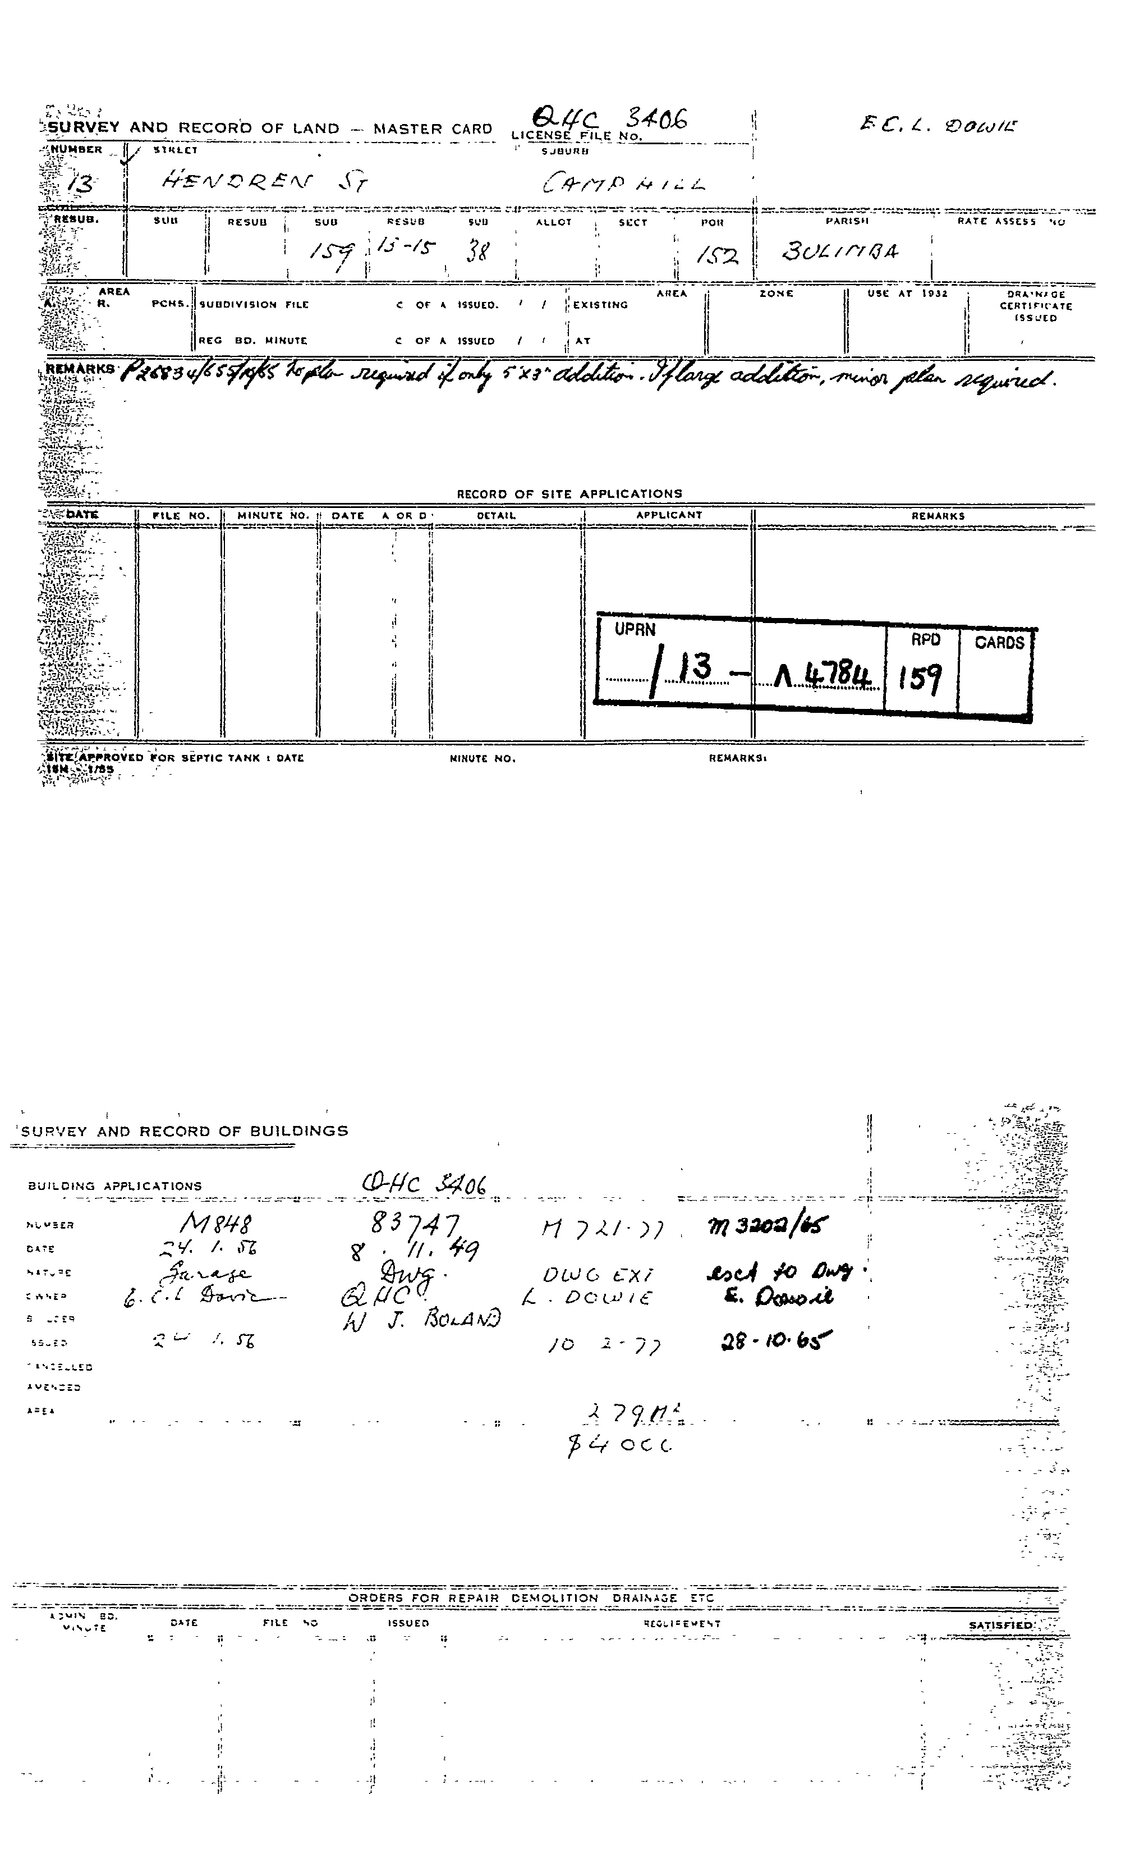 QHC 3406
E C. L. DOWIE
SURVEY AND RECORD OF LAND — MASTER CARD LICENSE FILE NO.
NUMBER STREET SUBURB
13 HENDREN ST CAMP HILL
RESUB. SUB RESUB SUB RESUB SUB ALLOT SECT POR PARISH RATE ASSESS NO
159 15-15 38 152 BULIMBA
AREA
A. R. PCHS. SUBDIVISION FILE C OF A ISSUED. / / EXISTING AREA ZONE USE AT 1932 DRAINAGE CERTIFICATE ISSUED
REG BD. MINUTE C OF A ISSUED / / AT
REMARKS P26834/655/10/65 No plan required if only 5'x3' addition. If large addition, minor plan required.
RECORD OF SITE APPLICATIONS
DATE FILE NO. MINUTE NO. DATE A OR D DETAIL APPLICANT REMARKS
UPRN RPD CARDS
/ 13 — 4784 159
SITE APPROVED FOR SEPTIC TANK : DATE MINUTE NO. REMARKS:
15M - 1/55
SURVEY AND RECORD OF BUILDINGS
BUILDING APPLICATIONS QHC 3406
NUMBER M848 83747 M 721.77 M3202/65
DATE 24. 1. 56 8 . 11. 49
NATURE Garage Dwg. DWG EXT to Dwg.
OWNER E. C. L Dowie QHC. L. DOWIE E. Dowie
BUILDER W J. BOLAND
ISSUED 24 1. 56 10 2-77 28-10-65
CANCELLED
AMENDED
AREA 279 M²
$4000
ORDERS FOR REPAIR DEMOLITION DRAINAGE ETC
ADMIN BD. MINUTE DATE FILE NO ISSUED REQUIREMENT SATISFIED